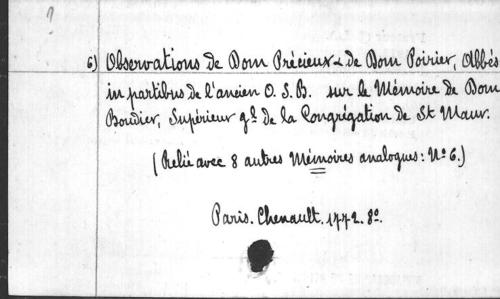 ?
6) Observations de Dom Précieux & de Dom Poirier, Abbés
in partibus de l'ancien O. S. B. sur le Mémoire de Dom
Boudier, Supérieur gl. de la Congrégation de St Maur.
(Relié avec 8 autres Mémoires analogues: No 6.)
Paris. Chenault. 1772. 8o.